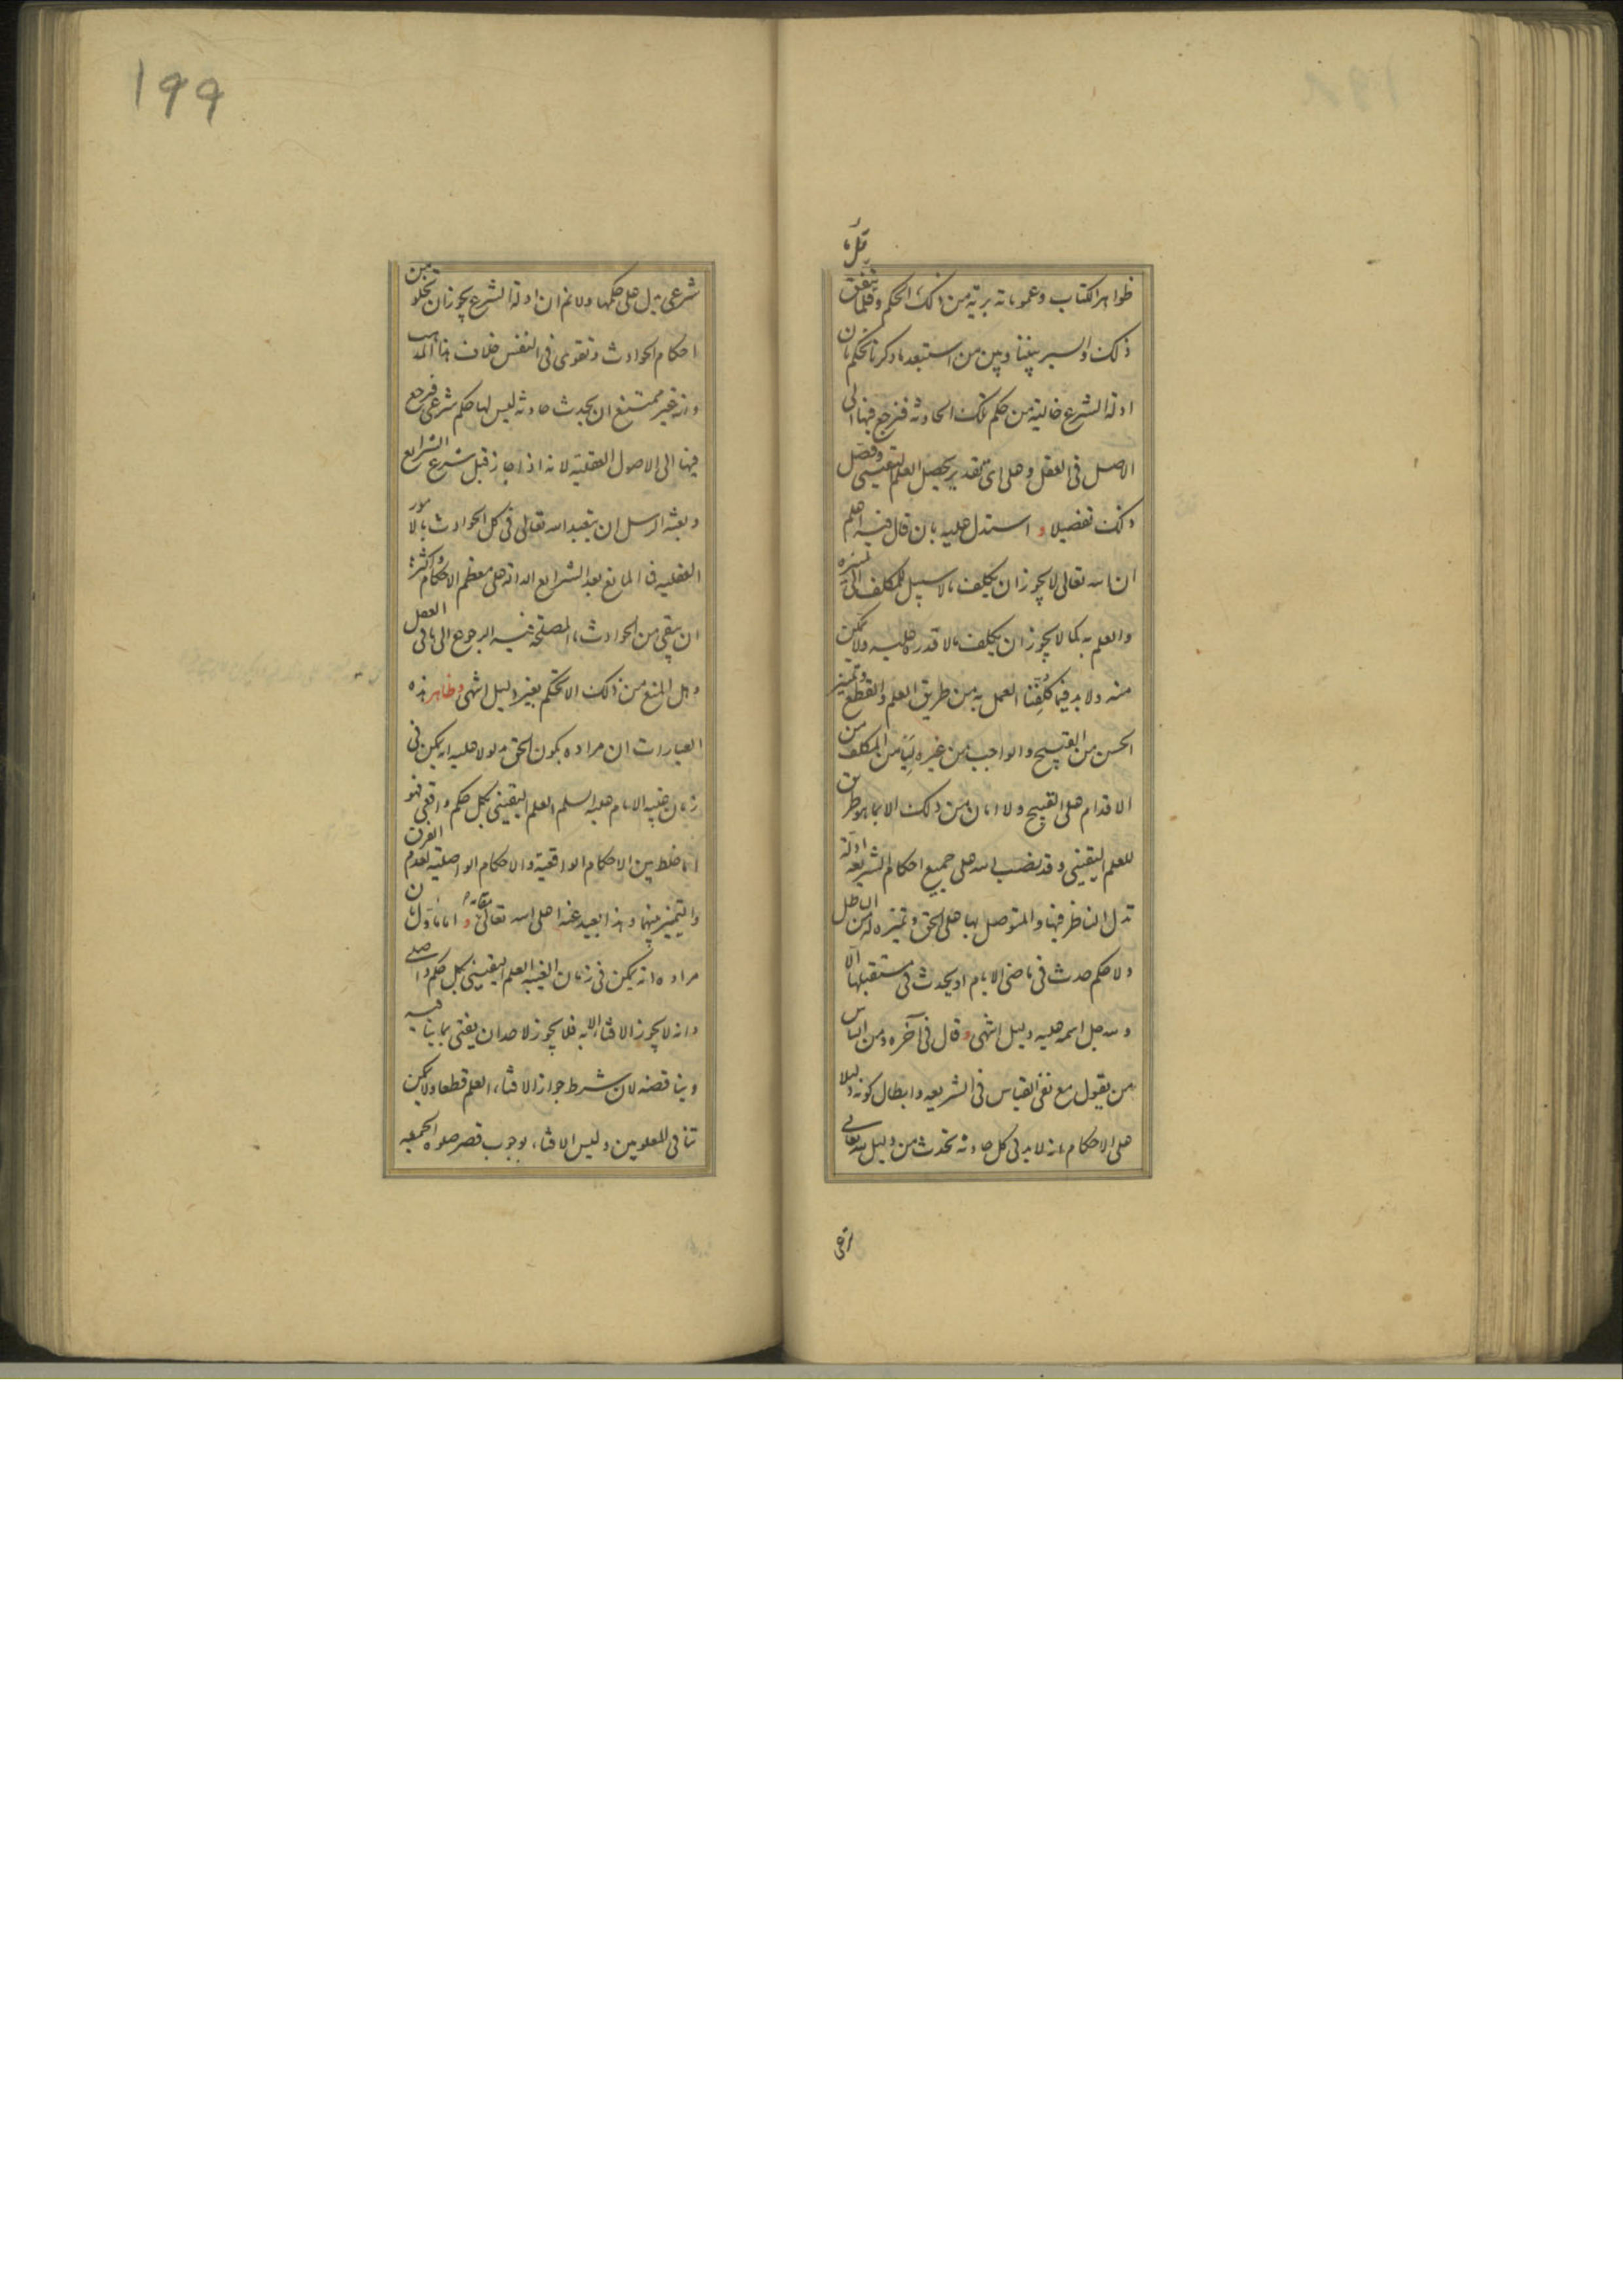 قلّ ما
ظواهر الكتاب وعموماته برية من ذلك الحكم وقلما يتفق
ذلك والسبر بيننا وبين من استبعد ما ذكرنا نحكم بان
ادلة الشرع خالية من حكم تلك الحادثة فنرجع فيها الى
الاصل فى العقل وعلى اىّ تقدير يحصل العلم اليقيني وفصّل
ذلك تفصيلا و استدل عليه بان قال فيه اعلم
ان الله تعالى لا يجوز ان يكلف ما لا سبيل للمكلف الى تميزه
والعلم به كما لا يجوز ان يكلف ما لا قدرة عليه ولا تمكين
منه ولا بد فيما كُلِّفنا العمل به من طريق العلم والقطع وتميز
الحسن من القبيح والواجب من غيره ليَامن المكلف من
الاقدام على القبيح ولا امان من ذلك الا بما هو طريق
للعلم اليقيني وقد نصب الله على جميع احكام الشريعة ادلة
تدل الناظر فيها والمتوصل بها على الحق وتميزه له من الباطل
ولا حكم حدث فى ماضى الايام او يحدث فى مستقبلها الّا
ولله جل اسمه عليه دليل انتهى و قال فى آخره ومن الناس
من يقول مع نفى القياس فى الشريعه وابطال كونه دليلا
على الاحكام بانه لا بد فى كل حادثة تحدث من دليل لله تعالى
199
شرعى يدل على حكمها ولا نم ان ادلة الشرع يجوز ان تخلو من
احكام الحوادث وتقوى فى النفس خلاف هذا المذهب
وانه غير ممتنع ان يحدث حادثة ليس لها حكم شرعى فرجع
فيها الى الاصول العقلية لانه اذا جاز قبل شرع الشرايع
وبعثة الرسل ان يتعبد الله تعالى فى كل الحوادث بالامور
العقليه فما المانع بعد الشرايع الدالة على معظم الاحكام واكثرها
ان يبقى من الحوادث ما المصلحة فيه الرجوع الى ما فى العقل
وهل المنع من ذلك الا تحكم بغير دليل انتهى وظاهر هذه
العبارات ان مراده بكون الحق مدلولا عليه انه يمكن فى
زمان غيبه الامام عليه السلم العلم اليقينى بكل حكم واقعى فهو
اما خلط بين الاحكام الواقعية والاحكام الواصلية لعدم الفرق
والتميز بينهما وهذا بعيد عنه اعلى الله تعالى مقامه و اما مأوّل بان
مراده انه يمكن فى زمان الغيبه العلم اليقينى بكل حكم واصلى
وانه لا يجوز الافتاء الا به فلا يجوز لاحد ان يفتى بما ينافيه
ويناقضه لان شرط جواز الافتاء العلم قطعا ولا يمكن
تنافى المعلومين وليس الافتاء بوجوب قصر صلوة الجمعه